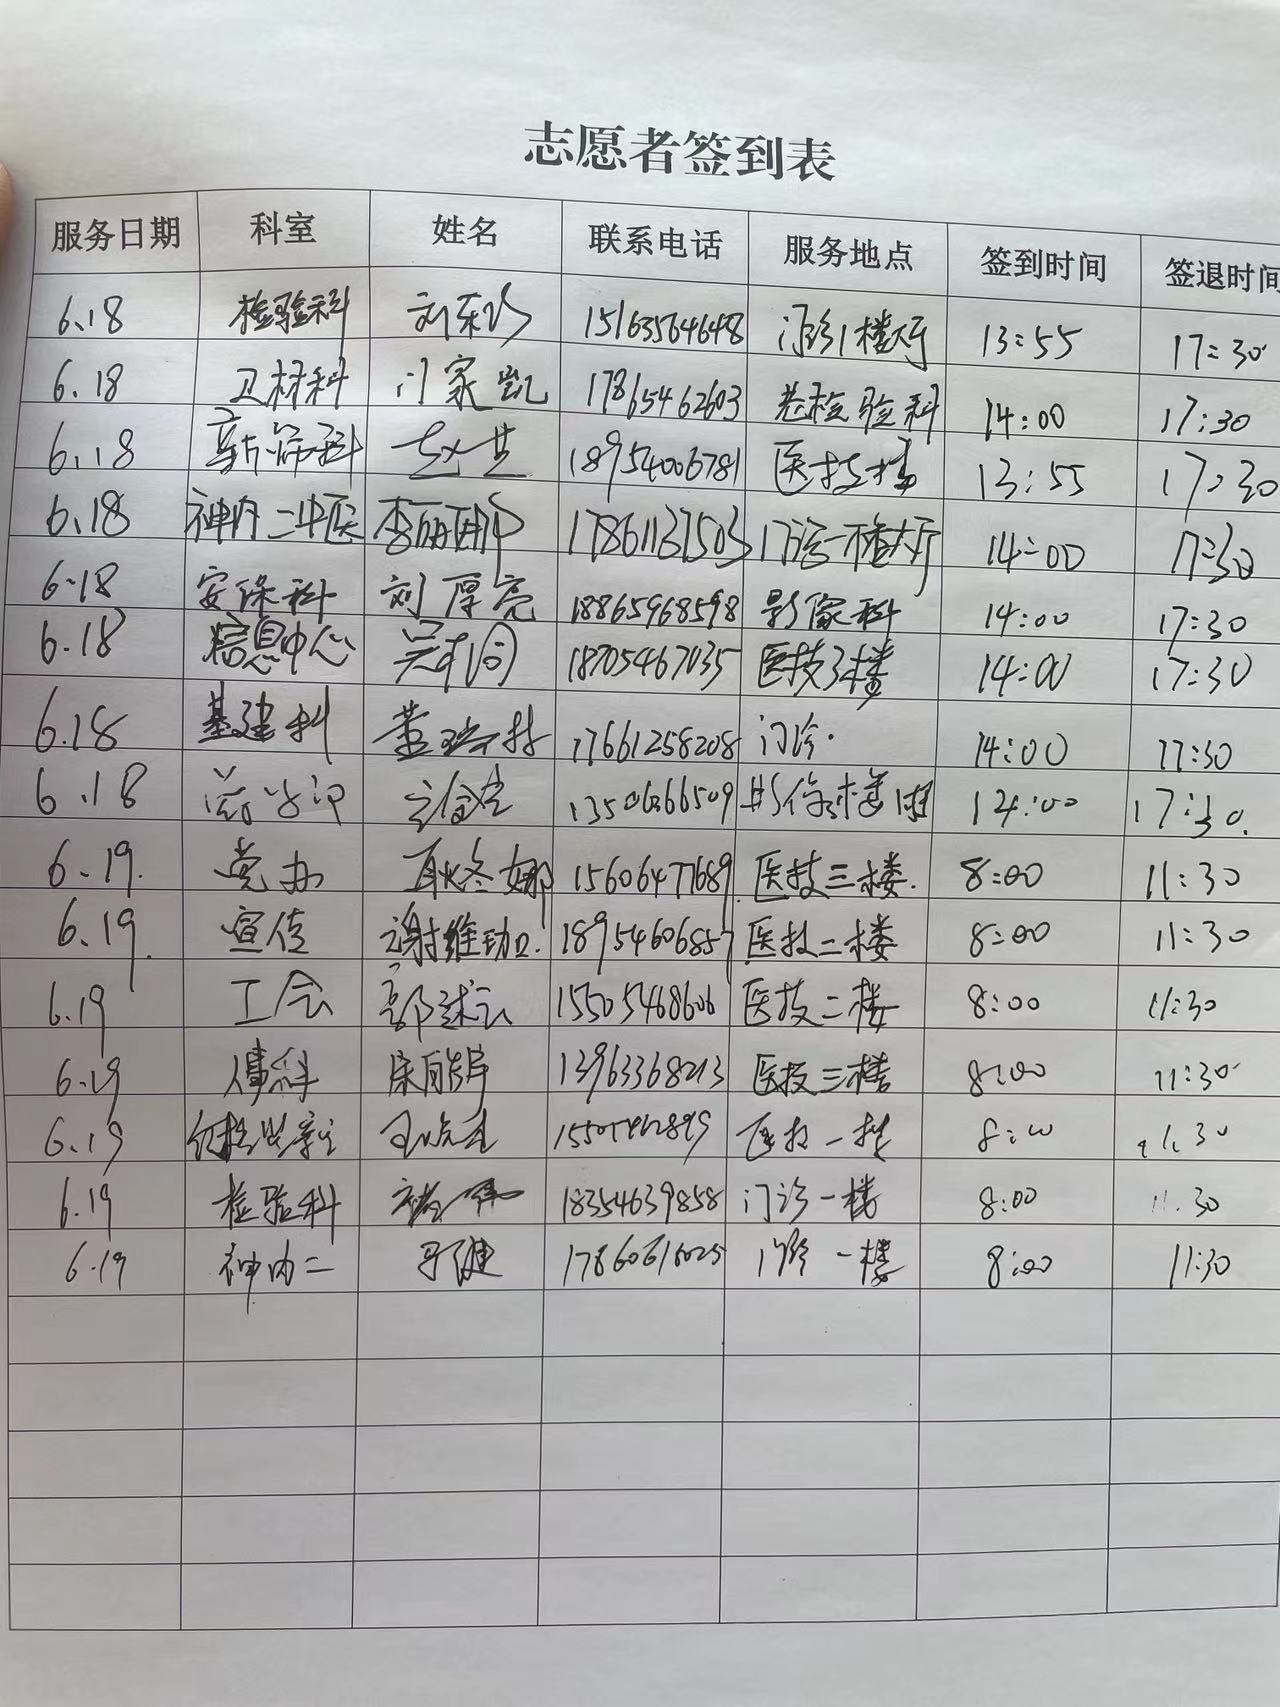 志愿者签到表
服务日期 科室 姓名 联系电话 服务地点 签到时间 签退时间
6.18 检验科 刘东 15163564648 门诊1楼大厅 13:55 17:30
6.18 卫材科 门家凯 17865462603 老检验科 14:00 17:30
6.18 科 赵 18954006781 医技楼 13:55 17:30
6.18 神内二中医 李丽娜 17861137503 门诊一楼大厅 14:00 17:30
6.18 安保科 刘厚亮 18865968598 影像科 14:00 17:30
6.18 信息中心 吴 18705467035 医技3楼 14:00 17:30
6.18 基建科 董瑞 17661258208 门诊. 14:00 17:30
6.18 楼 14:00 17:30.
6.19. 党办 耿冬娜 15606477689 医技三楼. 8:00 11:30
6.19. 宣传 谢维 18954606857 医技二楼 8:00 11:30
6.19 工会 郭 15505468606 医技二楼 8:00 11:30
6.19 人事科 13963368213 医技三楼 8:00 11:30
6.19 医技一楼 8:00 11:30
6.19 检验科 18354639858 门诊一楼 8:00 11:30
6.19 神内二 健 门诊一楼 8:00 11:30